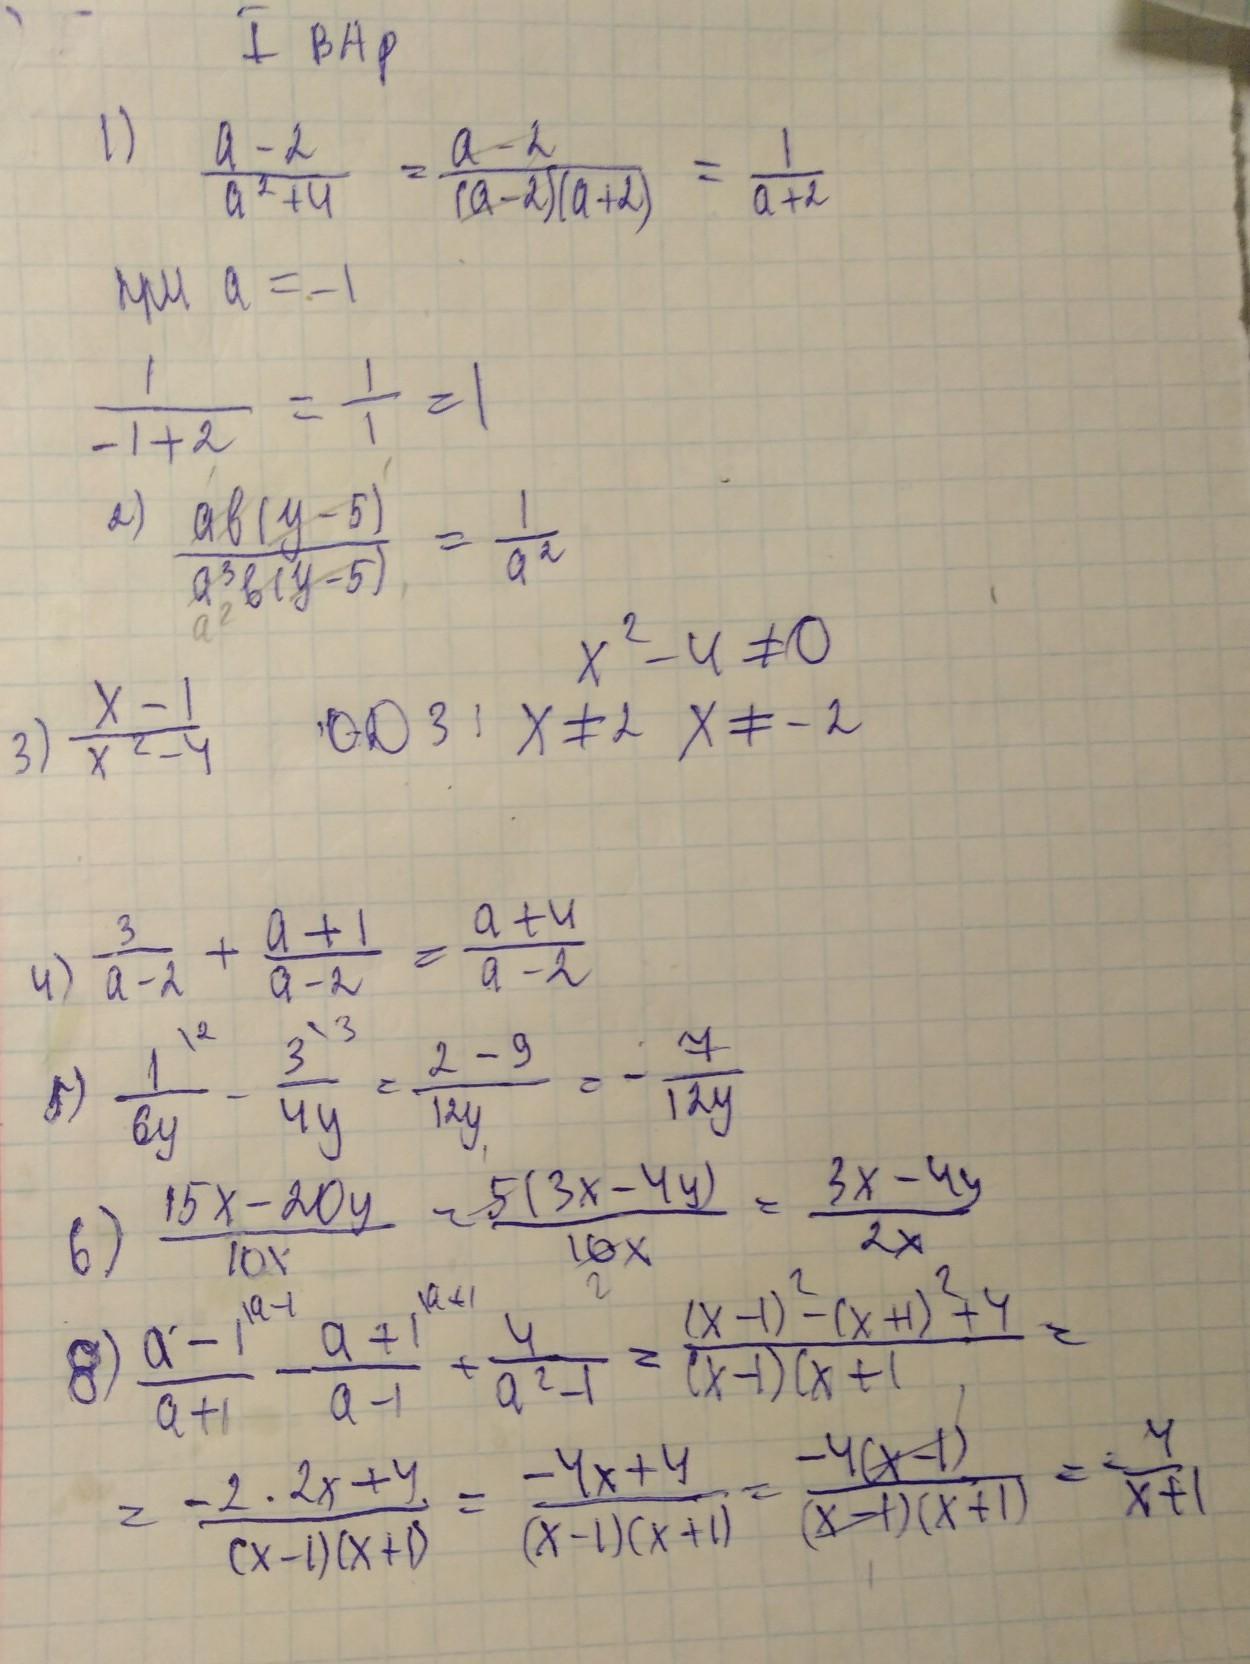 I вар
1) (a-2)/(a²+4) = (a-2)/((a-2)(a+2)) = 1/(a+2)
при a = -1
1/(-1+2) = 1/1 = 1
2) (aв(y-5))/(a³в(y-5)) = 1/a²
a²
x²-4≠0
3) (x-1)/(x²-4) ОДЗ: x≠2 x≠-2
4) 3/(a-2) + (a+1)/(a-2) = (a+4)/(a-2)
5) 1\2/(6y) - 3\3/(4y) = (2-9)/(12y) = -7/(12y)
6) (15x-20y)/(10x) = (5(3x-4y))/(10x) = (3x-4y)/(2x)
2
8) (a-1)\a-1/(a+1) - (a+1)\a+1/(a-1) + 4/(a²-1) = ((x-1)²-(x+1)²+4)/((x-1)(x+1) =
= (-2·2x+4)/((x-1)(x+1)) = (-4x+4)/((x-1)(x+1)) = (-4(x-1))/((x-1)(x+1)) = -4/(x+1)